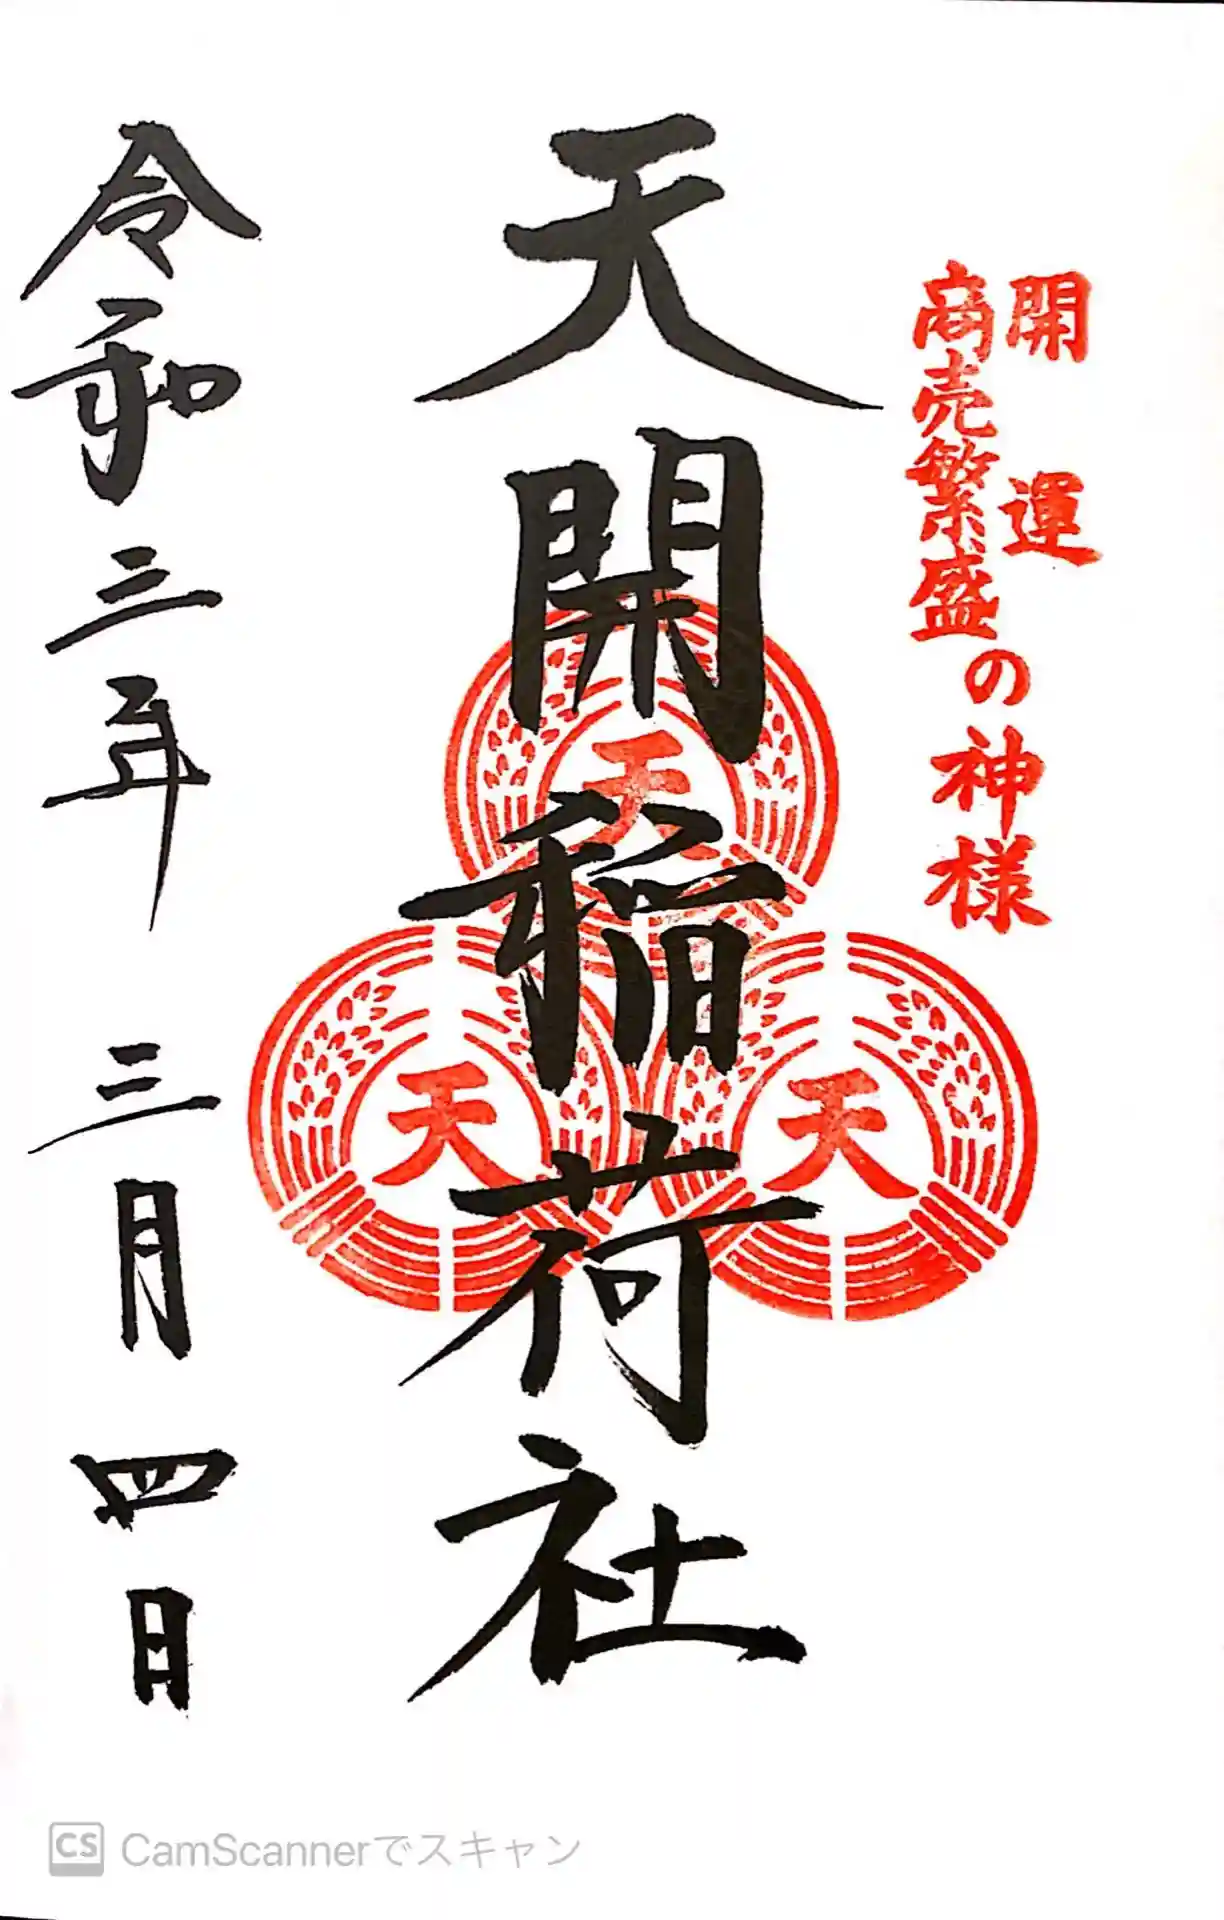 開運
商売繁盛
の神様
天開稲荷社
天
天
天
令和三年 三月四日
CS CamScannerでスキャン